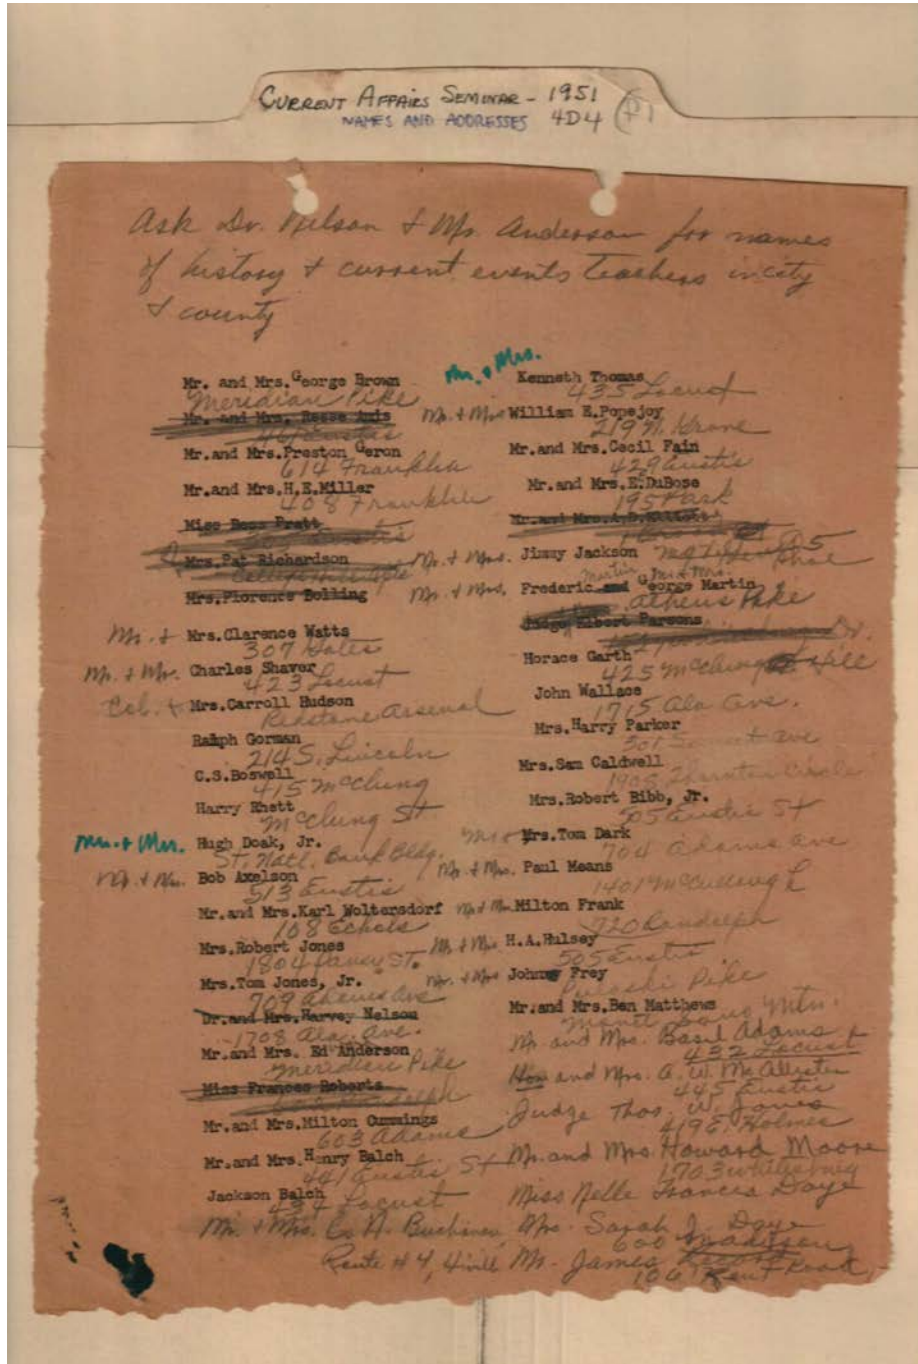 CURRENT AFFAIRS SEMINAR - 1951
NAMES AND ADDRESSES 4D4
Ask Dr. Nelson & Mr. Anderson for names
of history & current events teachers in city
& county
Mr. and Mrs. George Brown
Meridian Pike
Mr. and Mrs. Reese Amis
Eustis
Mr.and Mrs.Preston Geron
614 Franklin
Mr.and Mrs.H.E.Miller
408 Franklin
Miss Bess Pratt
Eustis
Mrs.Pat Richardson
Mrs.Florence Bolling
Mr. & Mrs.Clarence Watts
307 Gates
Mr. & Mrs. Charles Shaver
423 Locust
Col. & Mrs.Carroll Hudson
Redstone Arsenal
Ralph Gorman
214 S. Lincoln
C.S.Boswell
415 McClung
Harry Rhett
McClung St
Mr. & Mrs. Hugh Doak, Jr.
St. Natl. Bank Bldg.
Mr. & Mrs. Bob Axelson
513 Eustis
Mr. and Mrs.Karl Woltersdorf
108 Echols
Mrs.Robert Jones
1804 St.
Mrs.Tom Jones, Jr.
709 Adams Ave
Dr.and Mrs.Harvey Nelson
1708 Ala. Ave.
Mr.and Mrs. Ed Anderson
Meridian Pike
Miss Frances Roberts
Randolph
Mr.and Mrs.Milton Cummings
603 Adams
Mr.and Mrs.Henry Balch
441 Eustis St
Jackson Balch
434 Locust
Mr. & Mrs.
Route #4, Hville
Mr. & Mrs. Kenneth Thomas
435 Locust
Mr. & Mrs William E.Popejoy
219 W.
Mr. and Mrs.Cecil Fain
429 Eustis
Mr.and Mrs.E.DuBose
195 Park
Mr.and Mrs.
Mr. & Mrs. Jimmy Jackson
Mr. & Mrs. Frederic Martin and Mr. & Mrs. George Martin
Athens Pike
Judge Elbert Parsons
Dr.
Horace Garth
425 McClung Hill
John Wallace
1715 Ala Ave.
Mrs.Harry Parker
301 Ave
Mrs.Sam Caldwell
Thornton Circle
Mrs.Robert Bibb, Jr.
Eustis St
Mr & Mrs.Tom Dark
704 Adams Ave
Mr. & Mrs. Paul Means
1401 McCullough
Mr & Mrs Milton Frank
720 Randolph
Mr. & Mrs H.A.Hulsey
505 Eustis
Mr. & Mrs Johnny Frey
Pulaski Pike
Mr.and Mrs.Ben Matthews
Monte Sano Mtn.
Mr. and Mrs. Basil Adams
432 Locust
Hon and Mrs. A. W. McAllister
445 Eustis
Judge Thos. W. Jones
419 E. Holmes
Mr. and Mrs Howard Moore
1703
Miss Nelle Frances Daye
Mrs. Sarah J. Daye
600 Madison
Mr. James